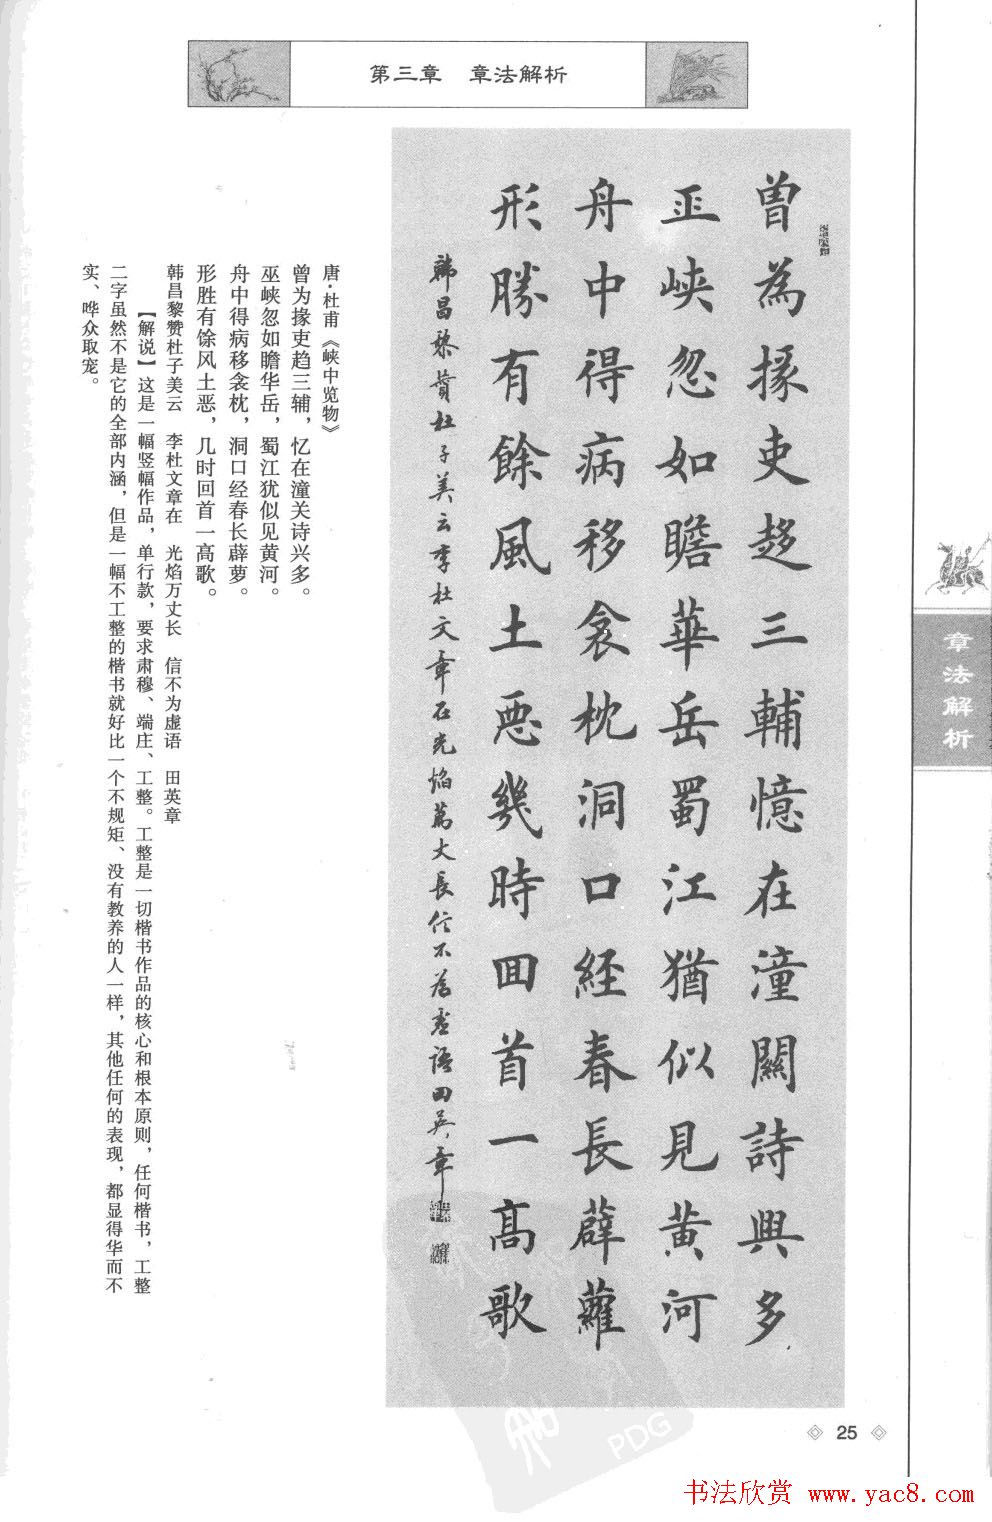 第三章 章法解析
曾為掾吏趍三輔憶在潼關詩興多
巫峡忽如瞻華岳蜀江猶似見黄河
舟中得病移衾枕洞口経春長薜蘿
形勝有餘風土恶幾時回首一高歌
韩昌黎賛杜子美云李杜文章在光焰萬丈長信不為虚語田英章
唐·杜甫《峡中览物》
曾为掾吏趋三辅，忆在潼关诗兴多。
巫峡忽如瞻华岳，蜀江犹似见黄河。
舟中得病移衾枕，洞口经春长薜萝。
形胜有馀风土恶，几时回首一高歌。
韩昌黎赞杜子美云 李杜文章在 光焰万丈长 信不为虚语 田英章
【解说】这是一幅竖幅作品，单行款，要求肃穆、端庄、工整。工整是一切楷书作品的核心和根本原则，任何楷书，工整
二字虽然不是它的全部内涵，但是一幅不工整的楷书就好比一个不规矩、没有教养的人一样，其他任何的表现，都显得华而不
实、哗众取宠。
章法解析
25
PDG
书法欣赏 www.yac8.com